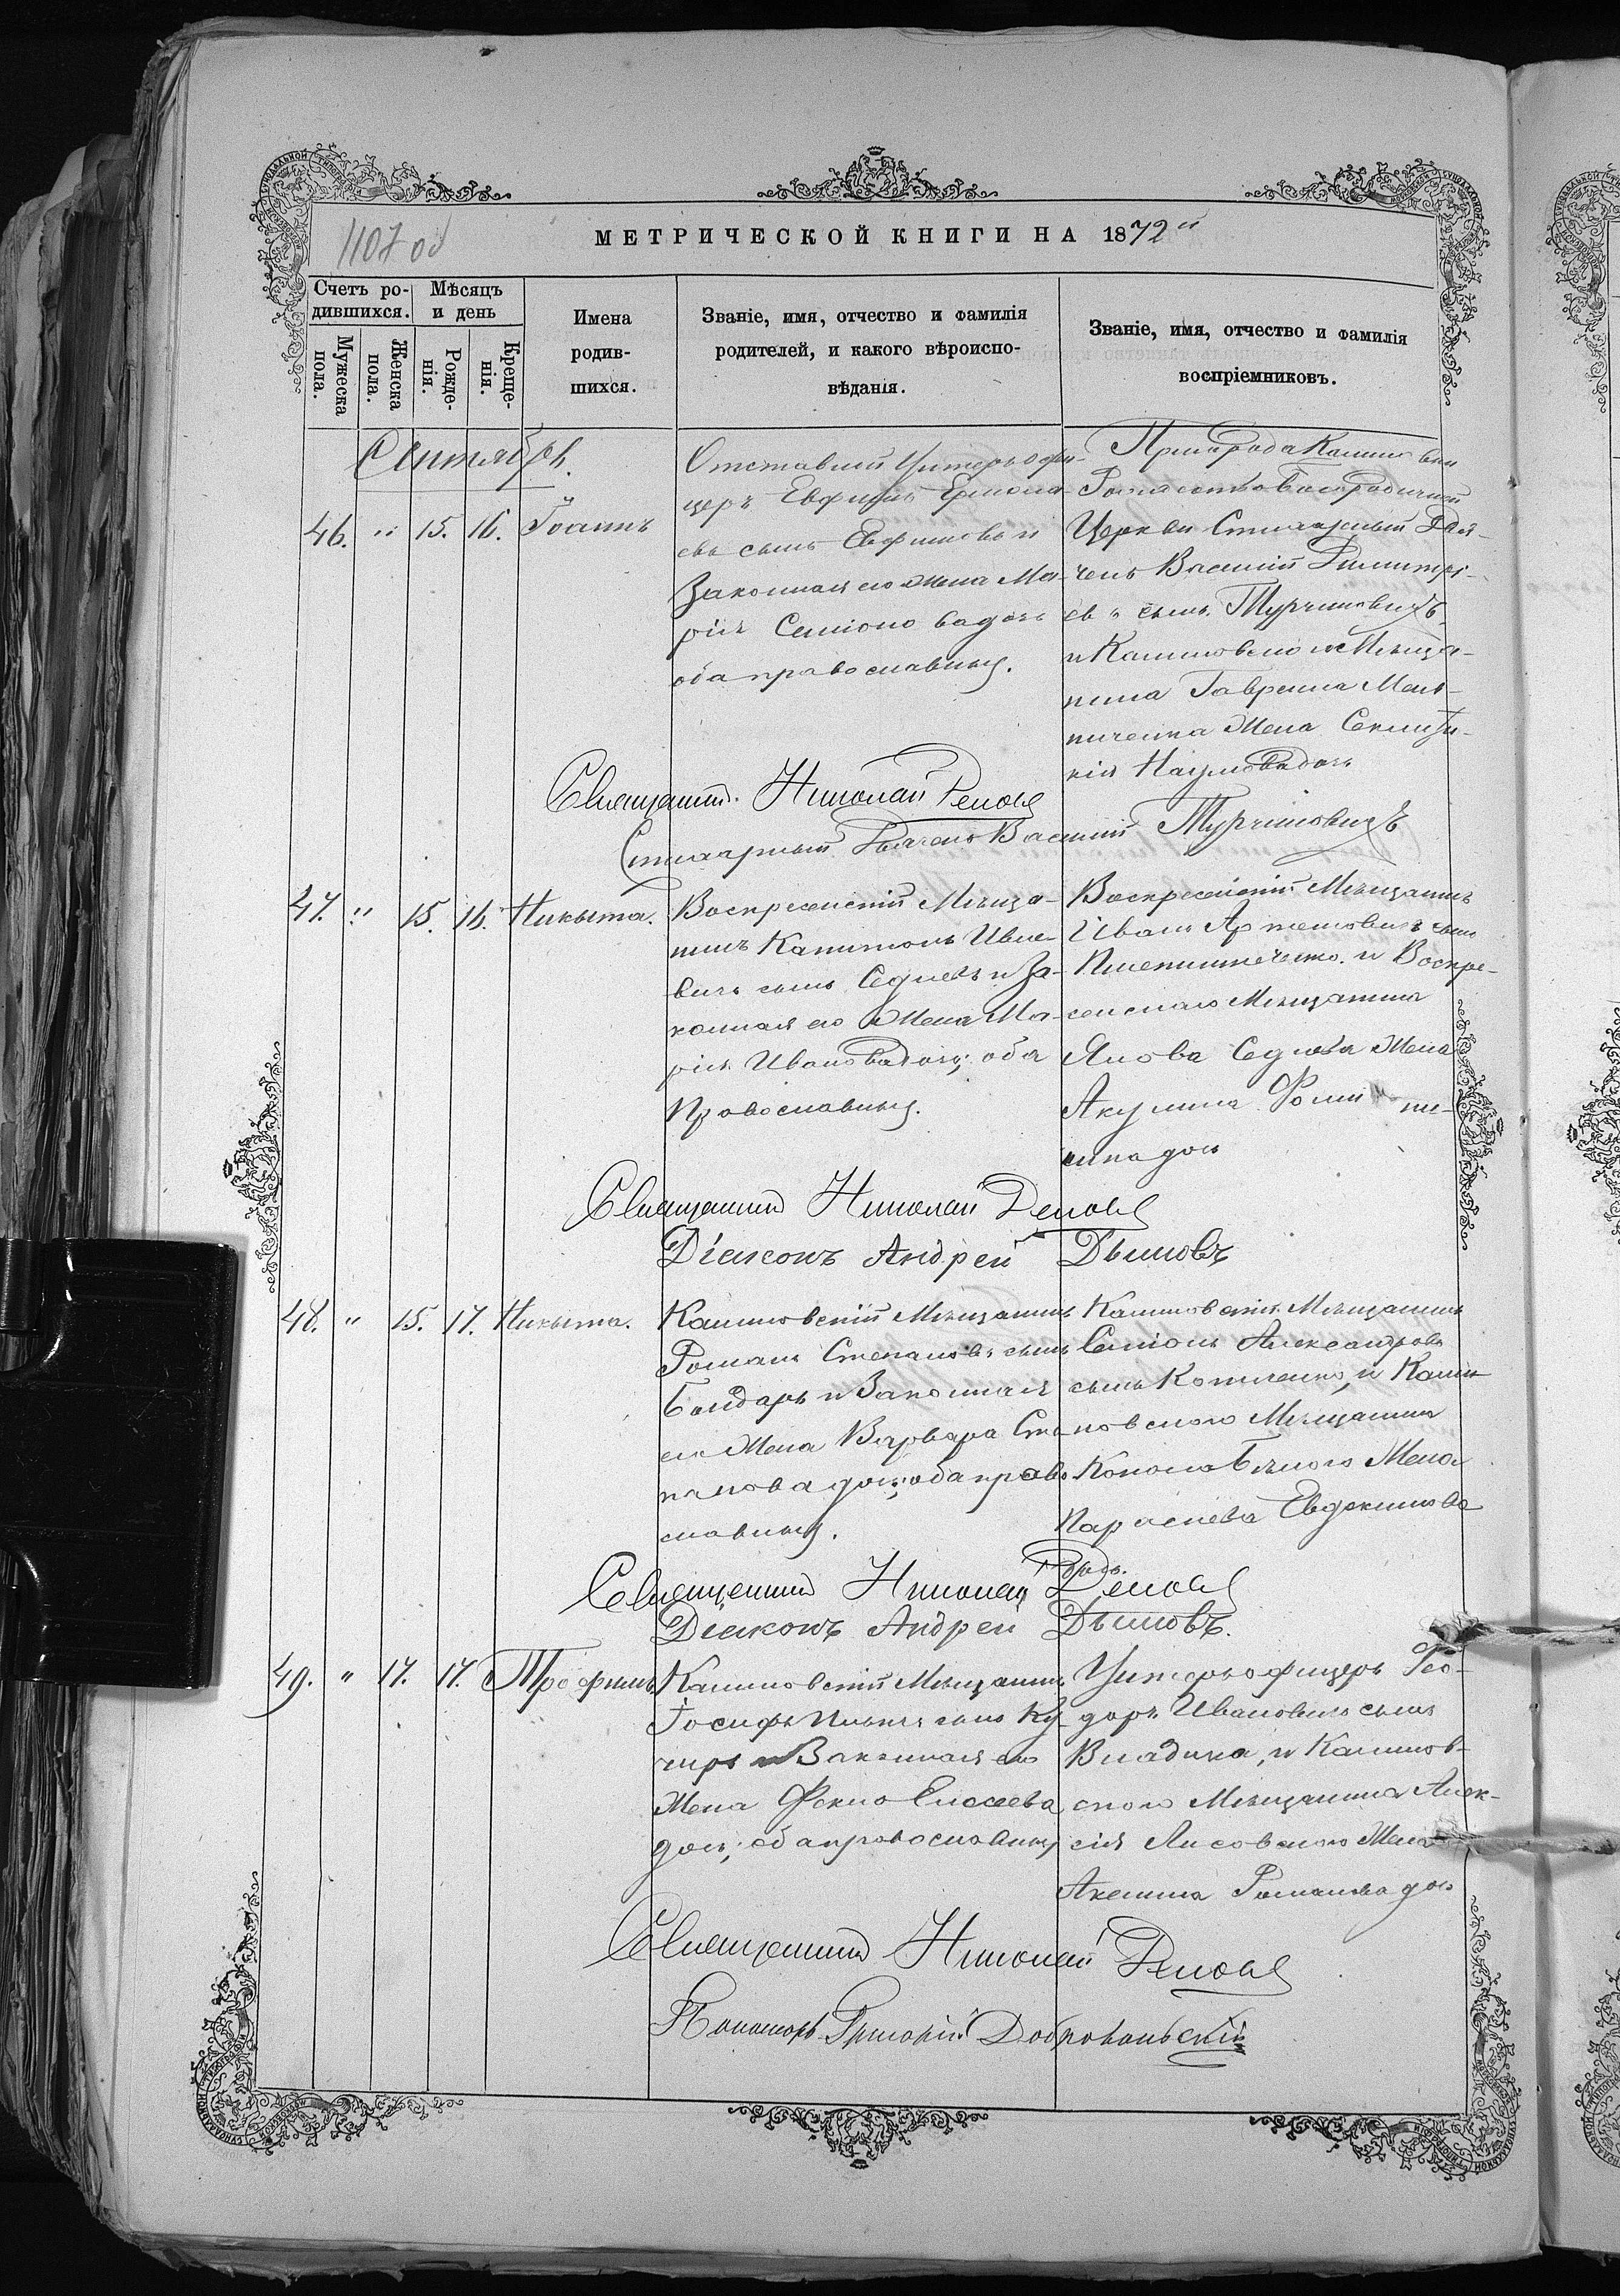 1107 об
МЕТРИЧЕСКОЙ КНИГИ НА 1872й
Счетъ ро-
дившихся.
Мужеска пола.
Женска пола.
Мѣсяцъ
и день
Рожде-
нія.
Креще-
нія.
Имена
родив-
шихся.
Званіе, имя, отчество и фамилія
родителей, и какого вѣроиспо-
вѣданія.
Званіе, имя, отчество и фамилія
воспріемниковъ.
Сентябрь.
46. " 15. 16. Іоаннъ
Отставный Унтеръ офи-
церъ Евфимъ
сынъ Евфимовъ и
Законная его Жена Ма-
рія Семіонова дочь
оба православныя.
Церкви Стихарный Дья-
чекъ Василій Димитрі-
евъ сынъ Турчиновичъ,
и Калиновского Мѣща-
нина Гаврiила Мель-
ниченка Жена
кія Наумова дочь
Священникъ Николай
Стихарный Дьячекъ Василій Турчиновичъ
47. " 15. 16. Никыта.
Воскресенскій Мѣща-
нинъ Капитонъ Ивано-
вичъ сынъ и За-
конная его Жена Ма-
рія Иванова дочь; оба
Православныя.
Воскресенскій Мѣщанинъ
Иванъ Артемовичъ сынъ
и Воскре-
сенскаго Мѣщанина
Якова Жена
Акулина
дочь
Священникъ Николай
Діаконъ Андрей Дымовъ
48. " 15. 17. Никыта.
Калиновскій Мѣщанинъ
Романъ Степановъ сынъ
Бондарь и Законная
его Жена Варвара Сте-
панова дочь; оба право-
славныя.
Калиновскій Мѣщанинъ
Семіонъ Александровъ
сынъ и Кали-
новского Мѣщанина
Жена
Параскева Евдокимова
дочь.
Священникъ Николай
Діаконъ Андрей Дымовъ.
49. " 17. 17. Трофимъ
Калиновскій Мѣщанинъ
Іосифъ сынъ Ку-
черъ и Законная его
Жена Елисеева
дочь; оба православныя
Унтеръ офицеръ Фео-
доръ Ивановичъ сынъ
Владыка, и Калинов-
ского Мѣщанина Алек-
сія Лисовского Жена
Акелина Романова дочь
Священникъ Николай
Пономарь Григорій Добровольскій